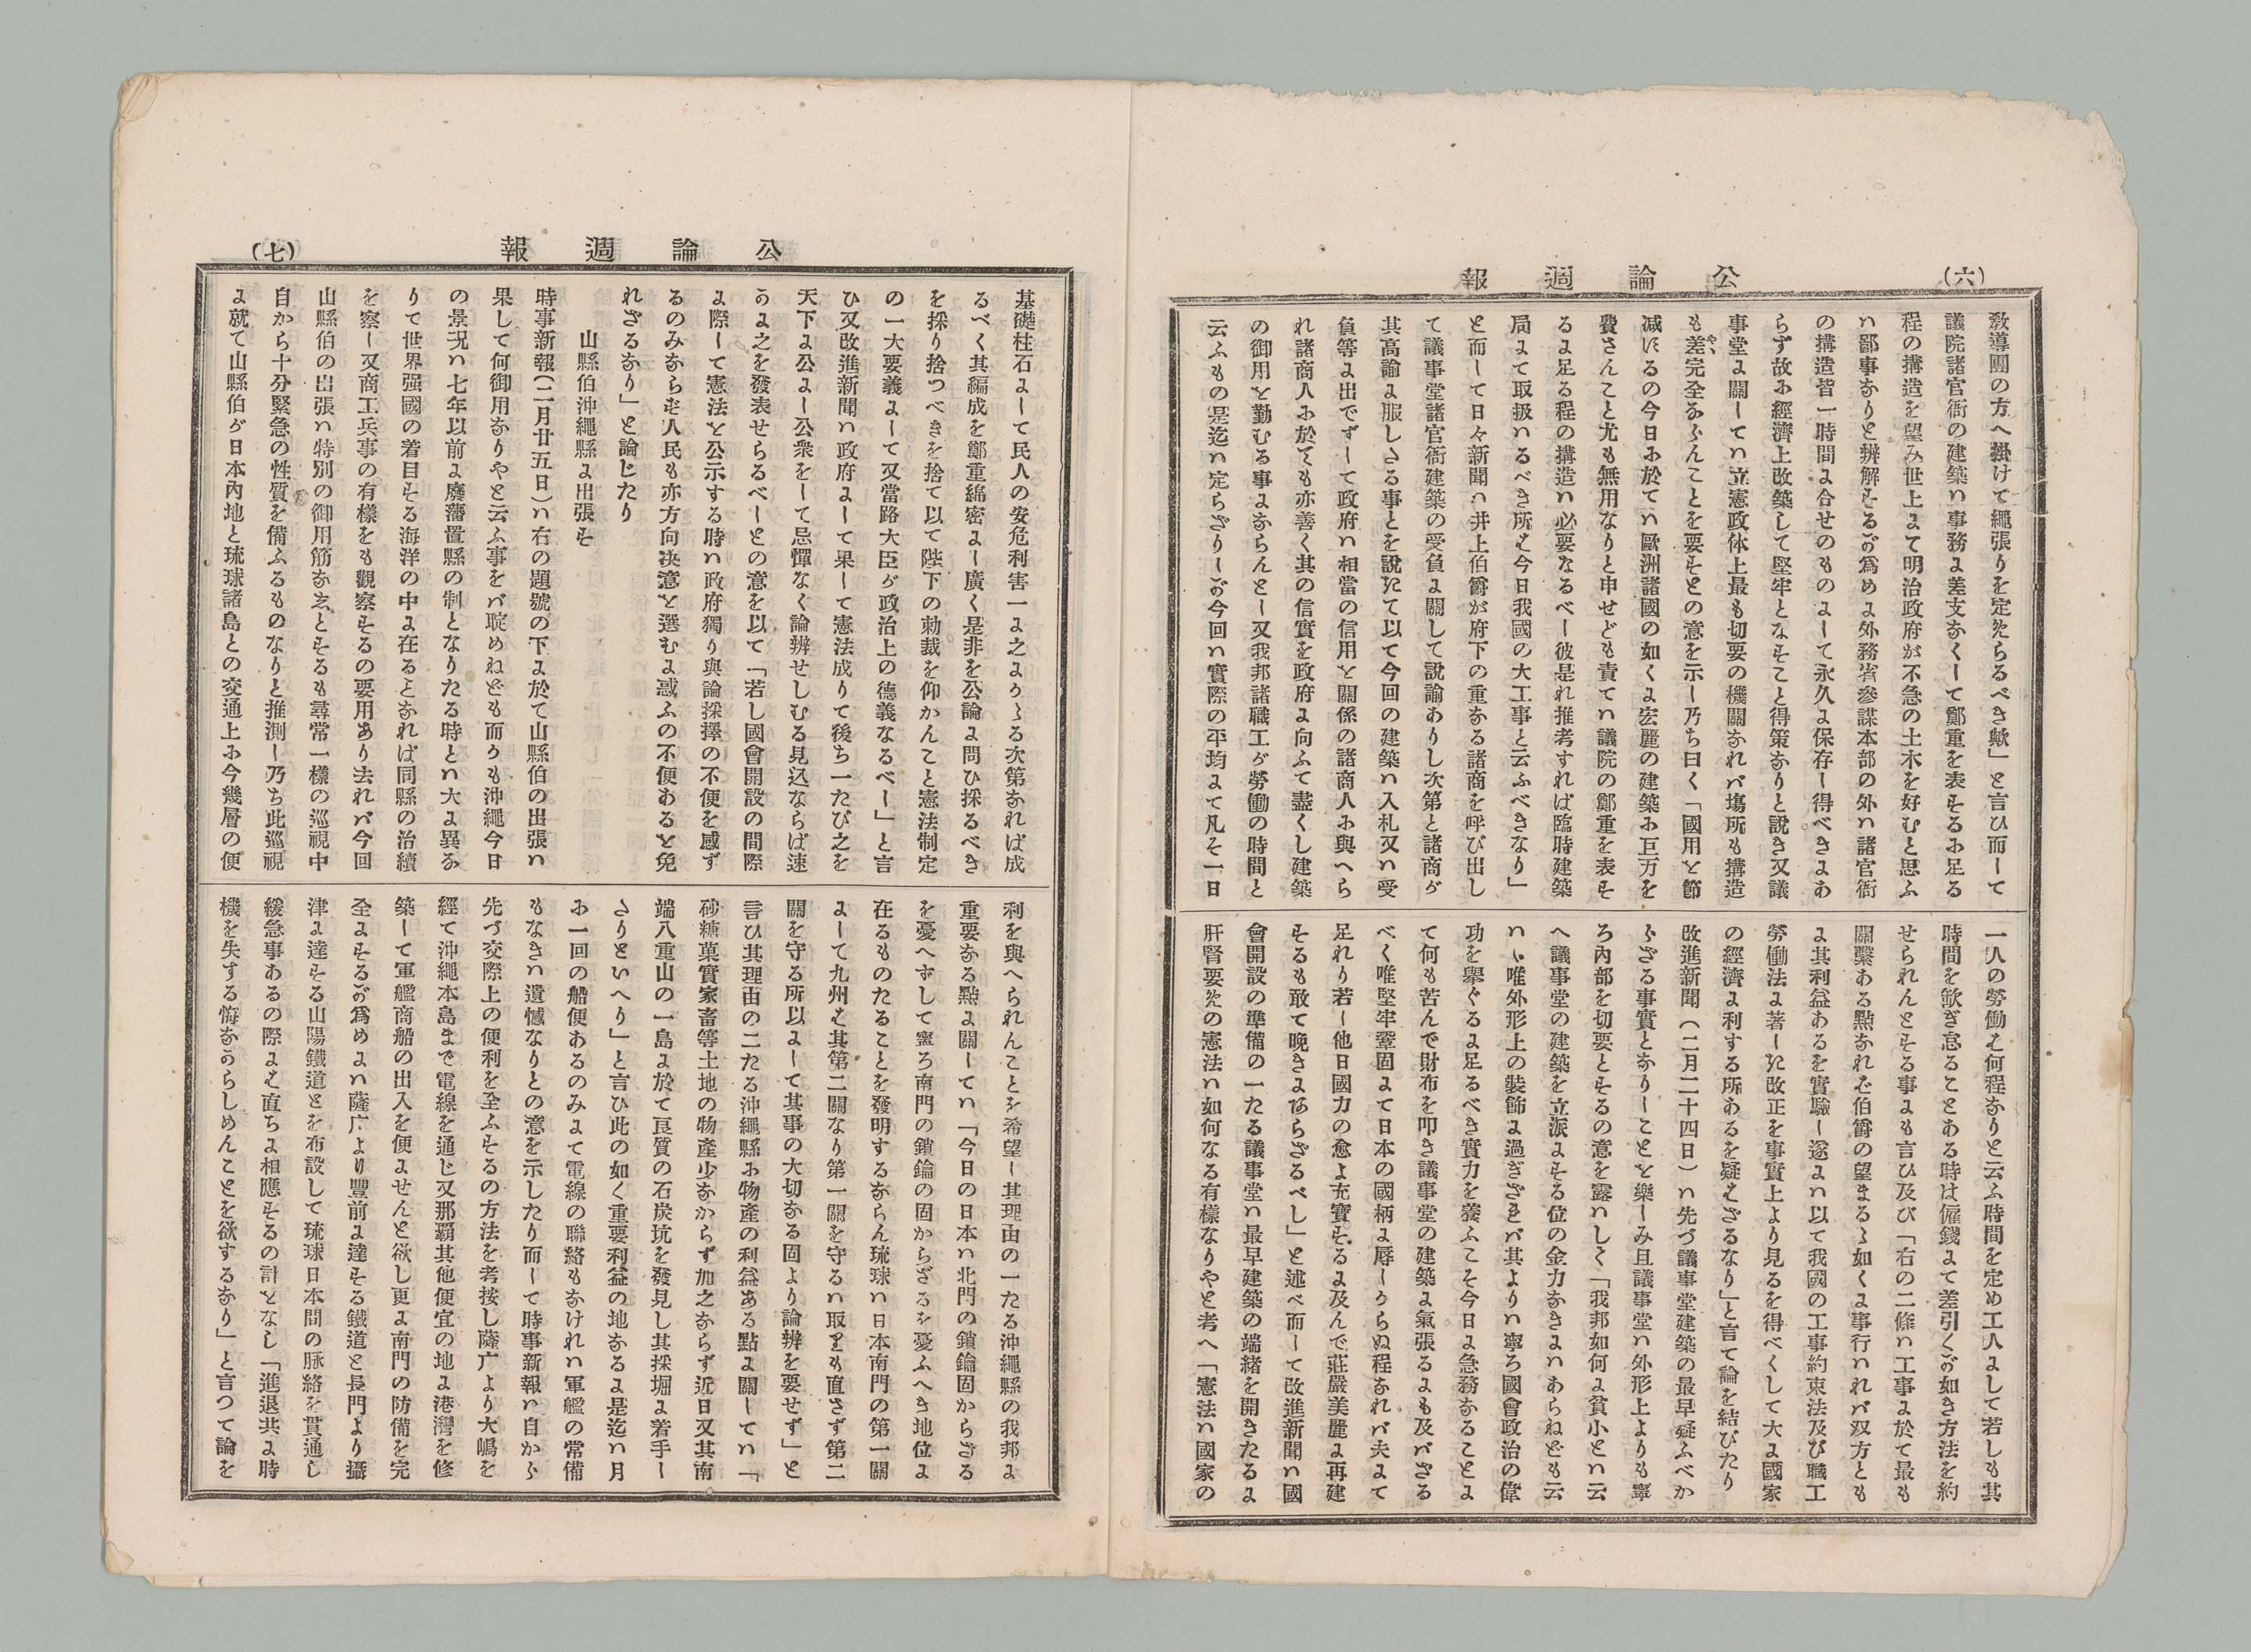 (六)
公論週報
敎導團の方へ掛けて繩張りを定めたらるべき歟」と言ひ而して
議院諸官衙の建築ハ事務に差支なくして鄭重を表するに足る
程の搆造を望み世上にて明治政府が不急の土木を好むと思ふ
ハ鄙事なりと辨解するが爲めに外務省參謀本部の外ハ諸官衙
の搆造皆一時間に合せのものにして永久に保存し得べきにあ
らず故に經濟上改築して堅牢となすこと得策なりと說き又議
事堂に關してハ立憲政体上最も切要の機關なれバ塲所も搆造
も差完全ならんことを要すとの意を示し乃ち曰く「國用を節
減するの今日に於てハ歐洲諸國の如くに宏麗の建築に巨万を
費さんこと尤も無用なりと申せども責てハ議院の鄭重を表す
るに足る程の搆造ハ必要なるべし彼是れ推考すれば臨時建築
局にて取扱ハるべき所は今日我國の大工事と云ふべきなり」
と而して日々新聞ハ井上伯爵が府下の重なる諸商を呼び出し
て議事堂諸官衙建築の受負に關して說諭ありし次第と諸商が
其高諭に服しさる事とを說たて以て今回の建築ハ入札又ハ受
負等に出でずして政府ハ相當の信用と關係の諸商人に與へら
れ諸商人に於ても亦善く其の信實を政府に向ふて盡くし建築
の御用と勤むる事にならんとし又我邦諸職工が勞働の時間と
云ふもの是迄ハ定らざりしが今回ハ實際の平均にて凡そ一日
一人の勞働は何程なりと云ふ時間を定め工人にして若しも其
時間を歛ぎ怠ることある時は傭錢にて差引くが如き方法を約
せられんとする事にも言ひ及び「右の二條ハ工事に於て最も
關繫ある點なれば伯爵の望まるゝ如くに事行ハれバ双方とも
に其利益あるを實驗し遂にハ以て我國の工事約束法及び職工
勞働法に著しき改正を事實上より見るを得べくして大に國家
の經濟に利する所あるを疑はざるなり」と言て論を結びたり
改進新聞(二月二十四日)ハ先づ議事堂建築の最早疑ふべか
らざる事實となりしことを樂しみ且議事堂ハ外形上よりも寧
ろ內部を切要とするの意を露ハしく「我邦如何に貧小とハ云
へ議事堂の建築を立派にする位の金力なきにハあらねども云
ハゞ唯外形上の裝飾に過ぎざれバ其よりハ寧ろ國會政治の偉
功を擧ぐるに足るべき實力を養ふこそ今日に急務なることに
て何も苦んで財布を叩き議事堂の建築に氣張るにも及バざる
べく唯堅牢鞏固にて日本の國柄に辱しからぬ程なれバ夫にて
足れり若し他日國力の愈よ充實するに及んで莊嚴美麗に再建
するも敢て晚きにあらざるべし」と述べ而して改進新聞ハ國
會開設の準備の一たる議事堂ハ最早建築の端緒を開きたるに
肝腎要めの憲法ハ如何なる有樣なりやと考へ「憲法ハ國家の
(七)
公論週報
基礎柱石にして民人の安危利害一に之にかゝる次第なれば成
るべく其編成を鄭重綿密にし廣く是非を公論に問ひ採るべき
を採り捨つべきを捨て以て陛下の勅裁を仰かんこと憲法制定
の一大要義にして又當路大臣が政治上の德義なるべし」と言
ひ又改進新聞ハ政府にして果して憲法成りて後ち一たび之を
天下に公にし公衆をして忌憚なく論辨せしむる見込ならば速
かに之を發表せらるべしとの意を以て「若し國會開設の間際
に際して憲法を公示する時ハ政府獨り與論採擇の不便を感ず
るのみならず人民も亦方向决意を選むに惑ふの不便あるを免
れざるなり」と論じたり
山縣伯沖繩縣に出張す
時事新報(二月廿五日)ハ右の題號の下に於て山縣伯の出張ハ
果して何御用なりやと云ふ事をバ聢めねども而かも沖繩今日
の景况ハ七年以前に廢藩置縣の制となりたる時とハ大に異な
りて世界强國の着目する海洋の中に在るとなれば同縣の治績
を察し又商工兵事の有樣をも觀察するの要用あり去れバ今回
山縣伯の出張ハ特別の御用筋なゑとするも尋常一樣の巡視中
自から十分緊急の性質を備ふるものなりと推測し乃ち此巡視
に就て山縣伯が日本內地と琉球諸島との交通上に今幾層の便
利を與へられんことを希望し其理由の一たる沖繩縣の我邦に
重要なる點に關してハ「今日の日本ハ北門の鎖鑰固からざる
を憂へずして寧ろ南門の鎖鑰の固からざるを憂ふへき地位に
在るものたることを發明するならん琉球ハ日本南門の第一關
にして九州は其第二關なり第一關を守るハ取りも直さず第二
關を守る所以にして其事の大切なる固より論辨を要せず」と
言ひ其理由の二たる沖繩縣に物產の利益ある點に關してハ「
砂糖菓實家畜等土地の物產少なからず加之ならず近日又其南
端八重山の一島に於て良質の石炭坑を發見し其採堀に着手し
さりといへり」と言ひ此の如く重要利益の地なるに是迄ハ月
に一回の船便あるのみにて電線の聯絡もなけれハ軍艦の常備
もなきハ遺憾なりとの意を示したり而して時事新報ハ自から
先づ交際上の便利を全ふするの方法を考按し薩广より大嶋を
經て沖繩本島まで電線を通じ又那覇其他便宜の地に港灣を修
築して軍艦商船の出入を便にせんと欲し更に南門の防備を完
全にするが爲めにハ薩广より豐前に達する鐵道と長門より攝
津に達する山陽鐵道とを布設して琉球日本間の脉絡を貫通し
緩急事あるの際には直ちに相應するの計となし「進退共に時
機を失する悔なからしめんことを欲するなり」と言つて論を